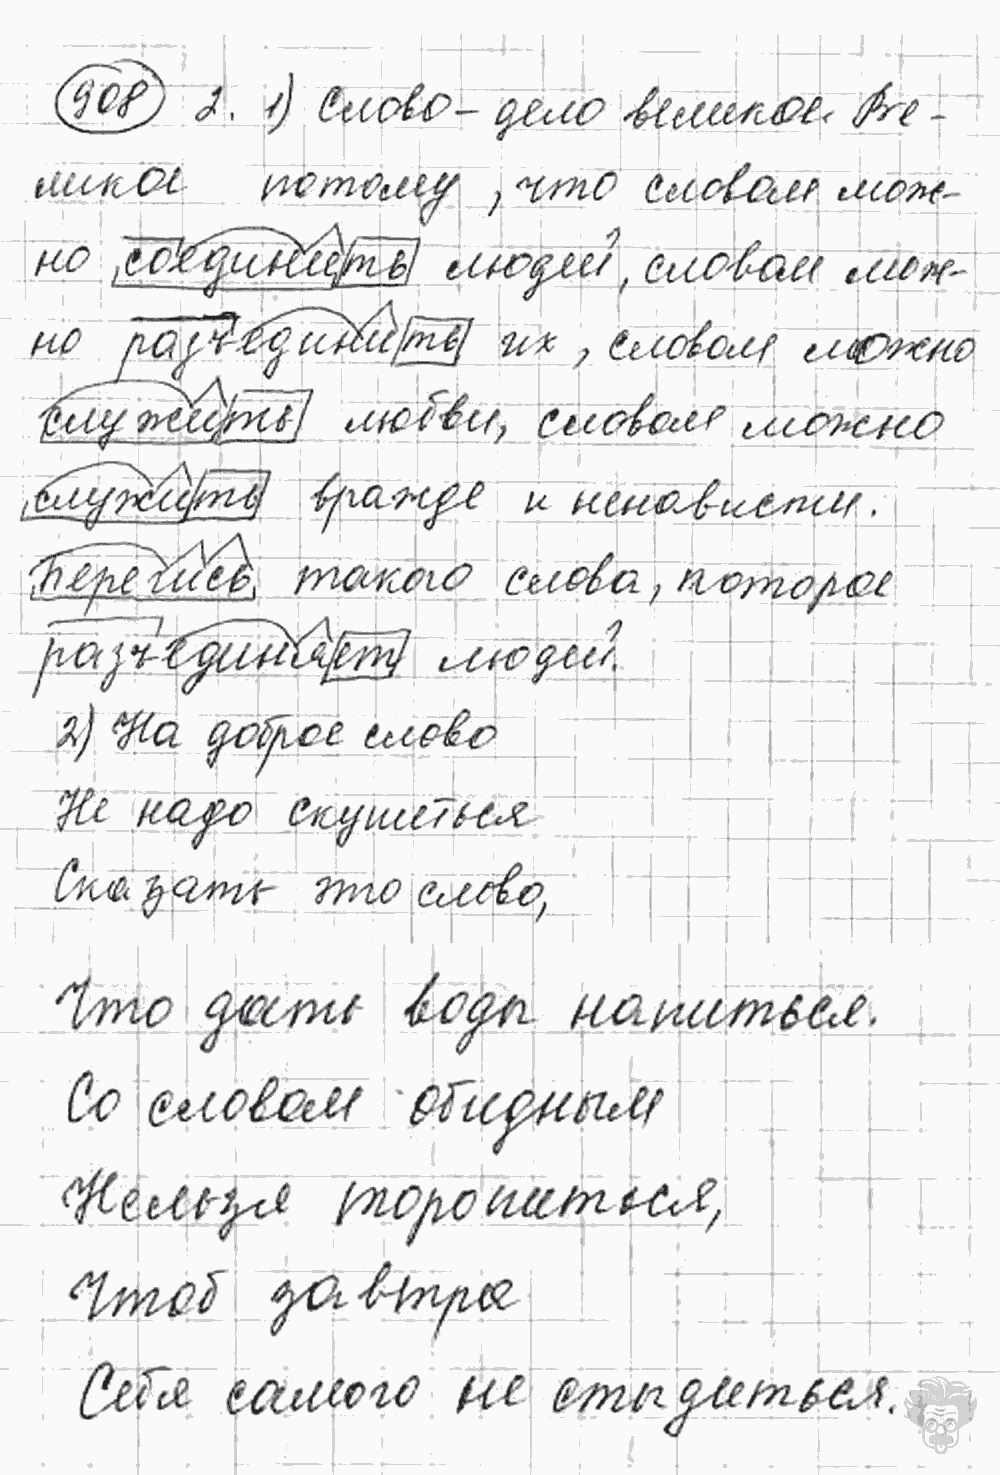 908 2. 1) Слово – дело великое. Ве-
ликое потому, что словом мож-
но соединить людей, словом мож-
но разъединить их, словом можно
служить любви, словом можно
служить вражде и ненависти.
Берегись такого слова, которое
разъединяет людей.
2) На доброе слово
Не надо скупиться
Сказать это слово,
Что дать воды напиться.
Со словом обидным
Нельзя торопиться,
Чтоб завтра
Себя самого не стыдиться.